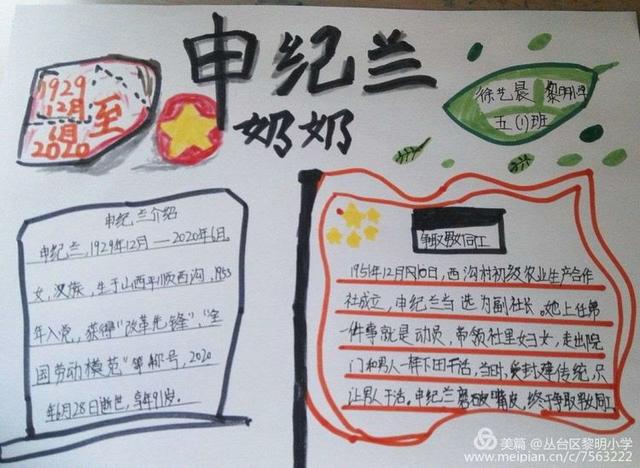 申纪兰
奶奶
1929
12月
至
6月
2020
徐艺晨 黎明小学
五(1)班
申纪兰介绍
申纪兰,1929年12月—2020年6月,
女,汉族,生于山西平顺西沟,1953
年入党,获得"改革先锋"、"全
国劳动模范"等称号,2020
年6月28日逝世,享年91岁。
争取男女同工
1951年12月10日,西沟村初级农业生产合作
社成立,申纪兰当选为副社长。她上任第
一件事就是动员,带领社里妇女,走出院
门和男人一样下田干活,当时,受封建传统,只
让男人干活。申纪兰磨破嘴皮,终于争取男女同工
美篇 @丛台区黎明小学
www.meipian.cn/c/7563222